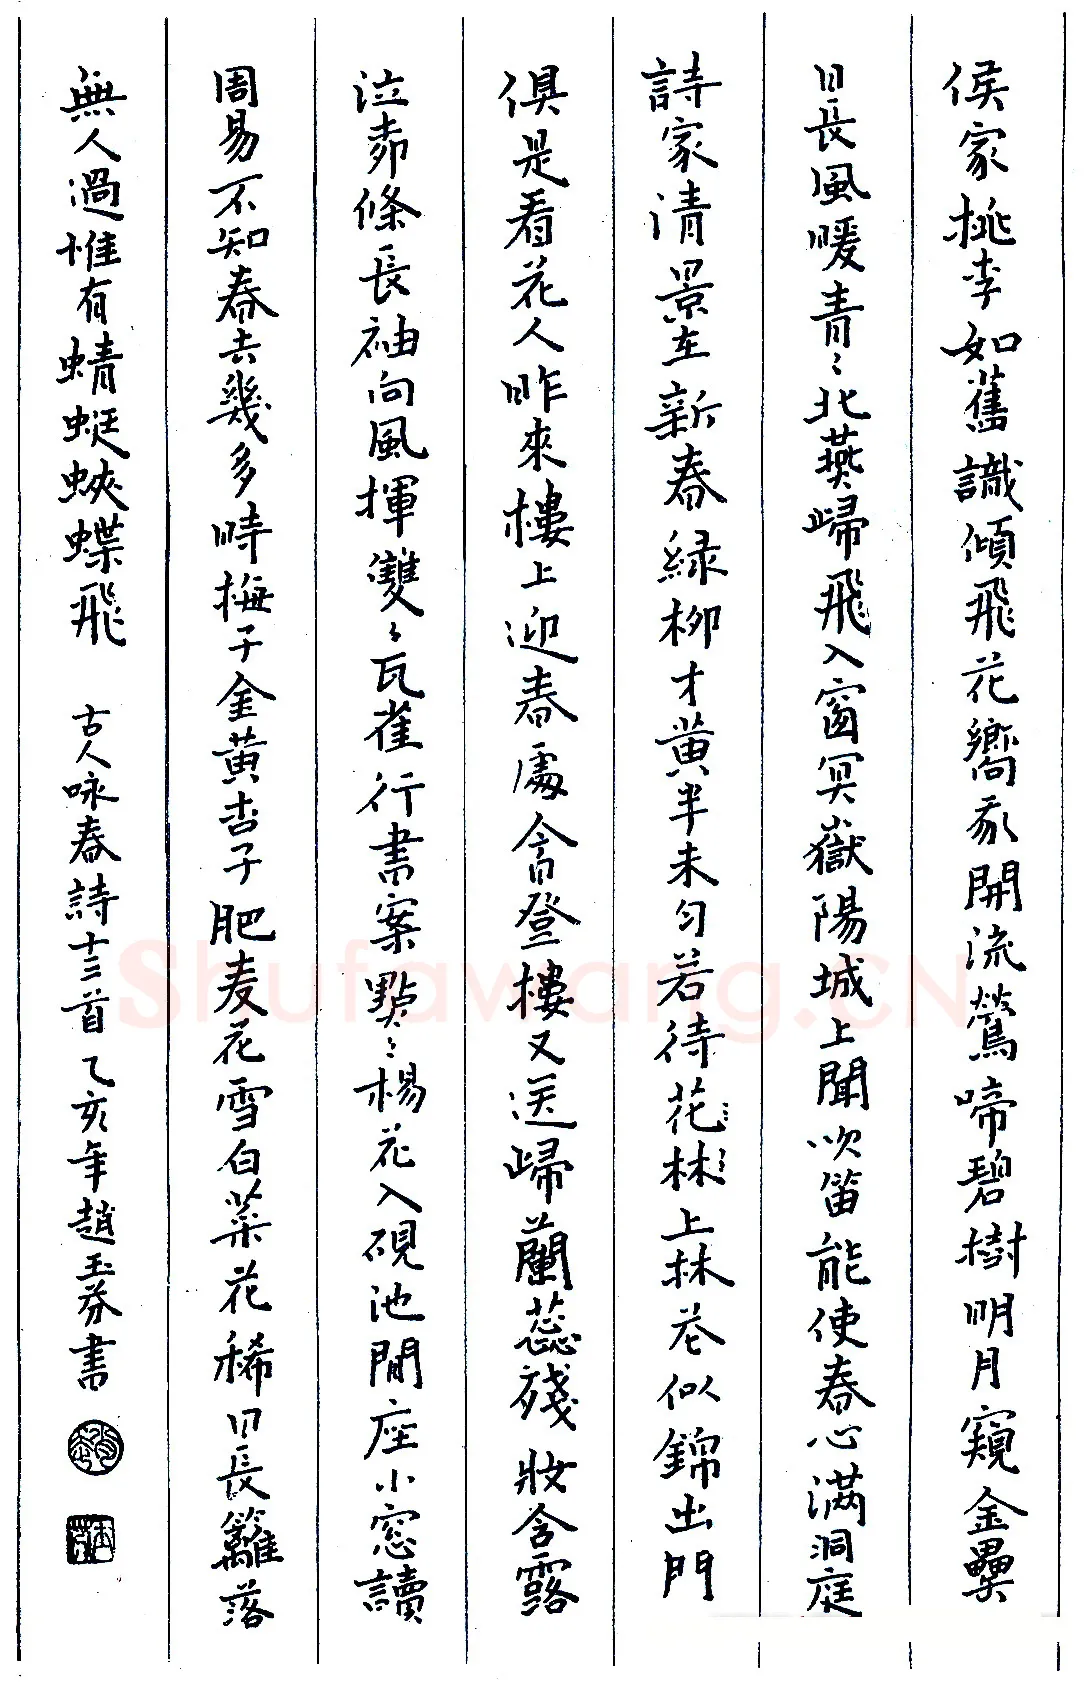 侯家桃李如舊識傾飛花嚮我開流鶯啼碧樹明月窺金罍
日長風暖青〻北燕歸飛入窗冥嶽陽城上聞吹笛能使春心滿洞庭
詩家清景在新春緑柳才黄半未匀若待花林上林花似錦出門
俱是看花人昨來樓上迎春處今日登樓又送歸蘭蕊殘妝含露
泣茆條長袖向風揮雙〻瓦雀行書案點〻楊花入硯池閒座小窓讀
周易不知春去幾多時梅子金黄杏子肥麦花雪白菜花稀日長籬落
無人過惟有蜻蜓蛺蝶飛
古人咏春詩十三首乙亥年趙玉芬書
Shufawang.CN